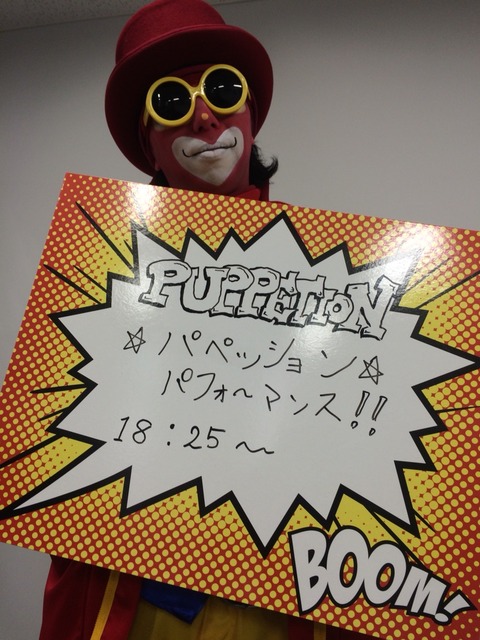 PUPPETION
☆パペッション☆
パフォ〜マンス!!
18:25〜
BOOM!